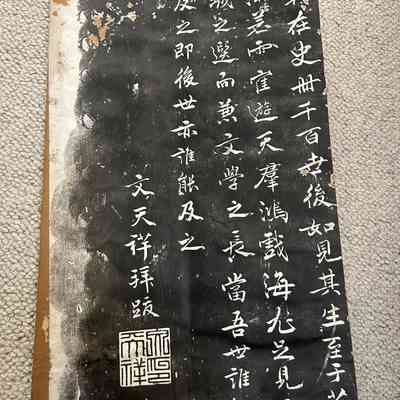 在史冊千百世後如見其生至于
遊天羣鴻戲海尤足見
之選而兼文學之長當吾世誰
及之即後世亦誰能及之
文天祥拜跋